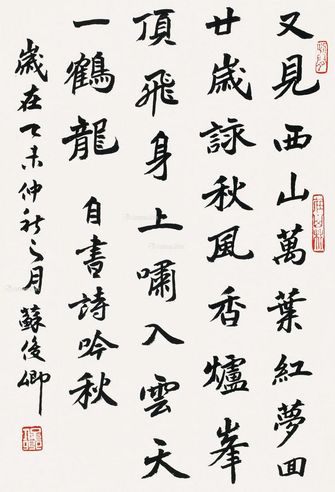 又見西山萬葉紅夢回
廿歲詠秋風香爐峯
頂飛身上嘯入雲天
一鶴龍 自書詩吟秋
歲在丁未仲秋之月蘇俊卿